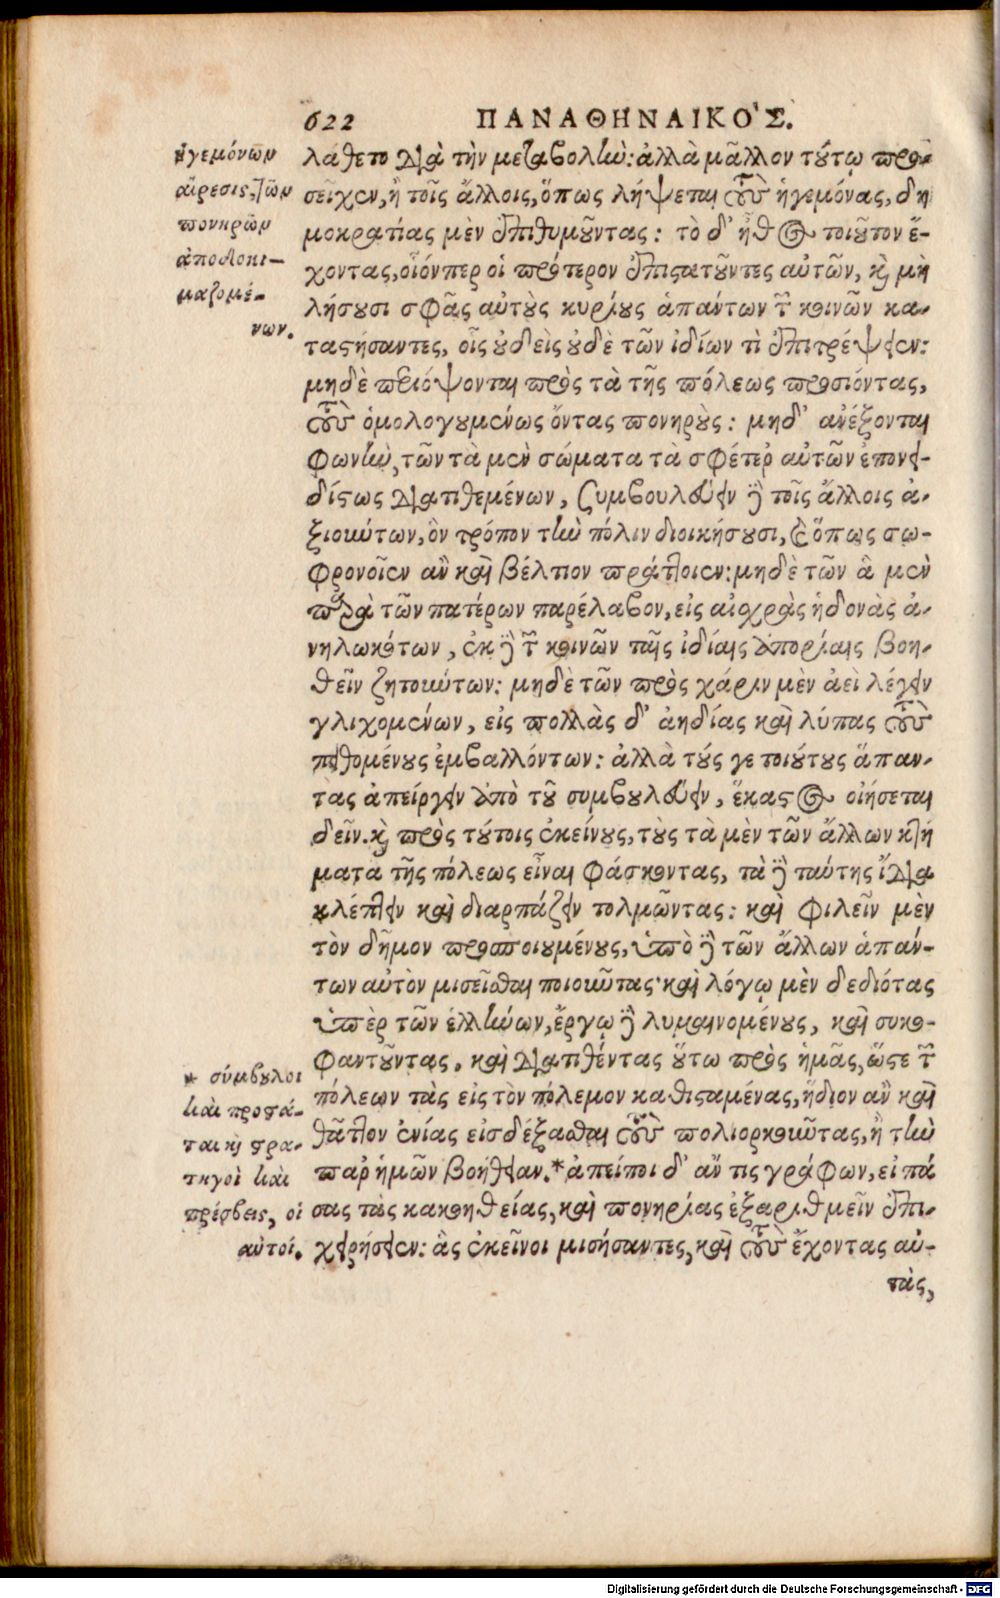 622 ΠΑΝΑΘΗΝΑΙΚΟ'Σ.
ἡγεμόνων
αἵρεσις, τῶν
πονηρῶν
ἀποδοκι-
μαζομέ-
νων.
λάθετο διὰ τὴν μεταβολήν: ἀλλὰ μᾶλλον τούτῳ προ-
σεῖχεν, ἢ τοῖς ἄλλοις, ὅπως λήψεται τοὺς ἡγεμόνας, δη
μοκρατίας μὲν ἐπιθυμοῦντας: τὸ δ' ἦθος τοιοῦτον ἔ-
χοντας, οἷόνπερ οἱ πρότερον ἐπιστατοῦντες αὐτῶν, καὶ μὴ
λήσουσι σφᾶς αὐτοὺς κυρίους ἁπάντων τῶν κοινῶν κα-
ταστήσαντες, οἷς οὐδεὶς οὐδὲ τῶν ἰδίων τὶ ἐπιτρέψειεν:
μηδὲ περιόψονται πρὸς τὰ τῆς πόλεως προσιόντας,
τοὺς ὁμολογουμένως ὄντας πονηρούς: μηδ' ἀνέξονται
φωνὴν, τῶν τὰ μὲν σώματα τὰ σφέτερ' αὐτῶν ἐπονει-
δίστως διατιθεμένων, συμβουλεύειν δὲ τοῖς ἄλλοις ἀ-
ξιούντων, ὃν τρόπον τὴν πόλιν διοικήσουσι, καὶ ὅπως σω-
φρονοῖεν ἂν καὶ βέλτιον πράττοιεν: μηδὲ τῶν ἃ μὲν
παρὰ τῶν πατέρων παρέλαβον, εἰς αἰσχρὰς ἡδονὰς ἀ-
νηλωκότων, ἐκ δὲ τῶν κοινῶν ταῖς ἰδίαις ἀπορίαις βοη-
θεῖν ζητούντων: μηδὲ τῶν πρὸς χάριν μὲν ἀεὶ λέγειν
γλιχομένων, εἰς πολλὰς δ' ἀηδίας καὶ λύπας τοὺς
πειθομένους ἐμβαλλόντων: ἀλλὰ τούς γε τοιούτους ἅπαν-
τας ἀπείργειν ἀπὸ τοῦ συμβουλεύειν, ἕκαστος οἰήσεται
δεῖν. καὶ πρὸς τούτοις ἐκείνους, τοὺς τὰ μὲν τῶν ἄλλων κτή
ματα τῆς πόλεως εἶναι φάσκοντας, τὰ δὲ ταύτης ἴδια
κλέπτειν καὶ διαρπάζειν τολμῶντας: καὶ φιλεῖν μὲν
τὸν δῆμον προσποιουμένους, ὑπὸ δὲ τῶν ἄλλων ἁπάν-
των αὐτὸν μισεῖσθαι ποιοῦντας· καὶ λόγῳ μὲν δεδιότας
ὑπὲρ τῶν ἑλλήνων, ἔργῳ δὲ λυμαινομένους, καὶ συκο-
φαντοῦντας, καὶ διατιθέντας οὕτω πρὸς ἡμᾶς, ὥστε τῶν
πόλεων τὰς εἰς τὸν πόλεμον καθισταμένας, ἥδιον ἂν καὶ
θᾶττον ἐνίας εἰσδέξασθαι τοὺς πολιορκοῦντας, ἢ τὴν
παρ' ἡμῶν βοήθειαν. *ἀπείποι δ' ἄν τις γράφων, εἰ πά
σας τὰς κακοηθείας, καὶ πονηρίας ἐξαριθμεῖν ἐπι-
χειρήσειεν: ἃς ἐκεῖνοι μισήσαντες, καὶ τοὺς ἔχοντας αὐ-
τὰς,
* σύμβουλοι
καὶ προστά-
ται καὶ στρα-
τηγοὶ καὶ
πρέσβεις, οἱ
αὐτοί.
Digitalisierung gefördert durch die Deutsche Forschungsgemeinschaft - DFG